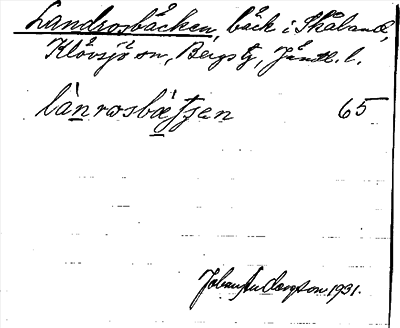 Landrosbäcken, bäck i Skåland,
Klövsjö sn, Bergs tg, Jämtl. l.
lànrosbætsen 65
Johan Anderson 1931.